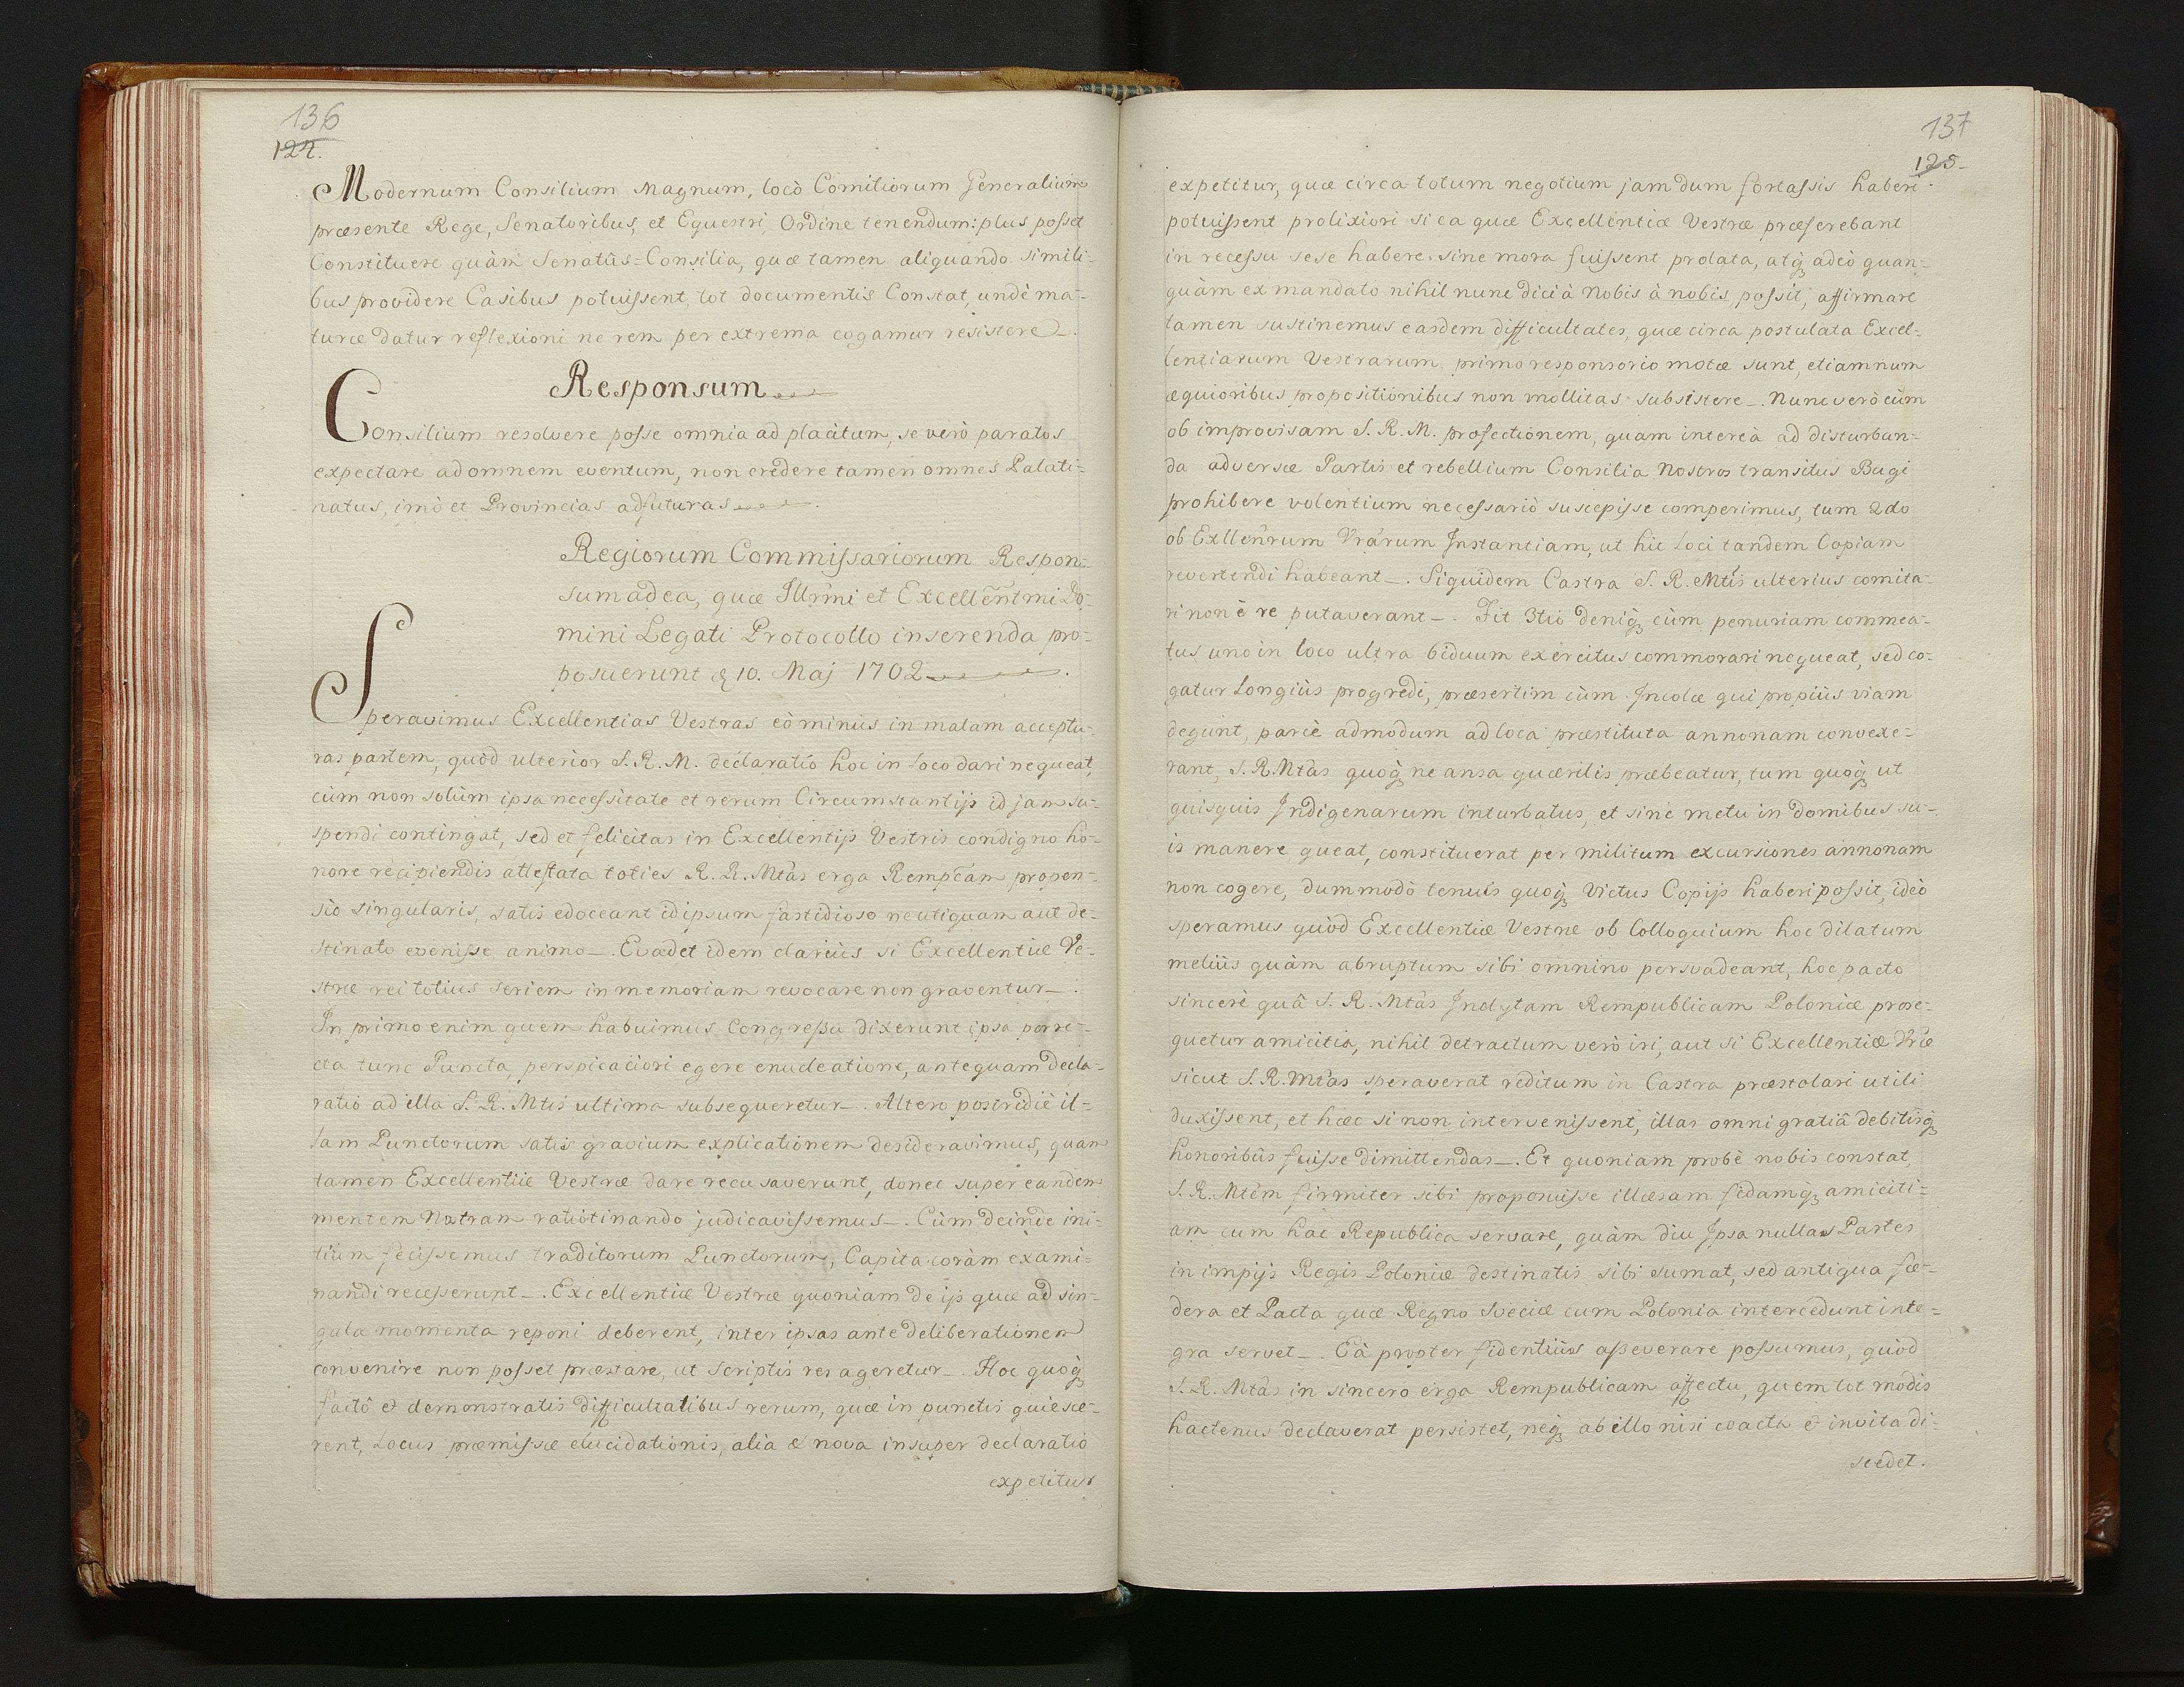 136
124.
Modernum Consilium Magnum, locò Comitiorum Generalium
præsente Rege, Senatoribus, et Equestri Ordine tenendum: plus posset
Constituere quàm Senatûs=Consilia, quæ tamen aliquando simili=
bus providere Casibus potuissent, tot documentis Constat, undè ma=
turæ datur reflexioni ne rem per extrema cogamur resistere_.
Responsum
Consilium resolvere posse omnia ad placitum, se verò paratos
expectare ad omnem eventum, non credere tamen omnes Palati=
natus, imò et Provincias adfuturas.
Regiorum Commissariorum Respon=
sum ad ea, quæ Illrmi et Excellentmi Do=
mini Legati Protocollo inserenda pro=
posuerunt d 10. Maj 1702.
Speravimus Excellentias Vestras eò minùs in malam acceptu=
ras partem, quòd ulterior S. R. M. declaratio hoc in loco dari nequeat,
cùm non solùm ipsa necessitate et rerum Circumstantijs id jam su=
spendi contingat, sed et felicitas in Excellentijs Vestris condigno ho=
nore recipiendis attestata toties R. R. Mtàs erga Rempcam propen=
sio singularis, satis edoceant idipsum fastidioso neutiquam aut de=
stinato evenisse animo_. Evadet idem clariùs si Excellentiæ Ve=
stræ rei totius seriem in memoriam revocare non graventur_.
In primo enim quem habuimus Congressu dixerunt ipsa porre=
cta tunc Puncta, perspicaciori egere enucleatione, antequam decla=
ratio ad illa S. R. Mtis ultima subsequeretur_. Altero postridiè il=
lam Punctorum satis gravium explicationem desideravimus, quam
tamen Excellentiæ Vestræ dare recusaverunt, donec super eandem
mentem Nostram ratiotinando judicavissemus_. Cùm deinde ini=
tium fecissemus traditorum Punctorum, Capita coràm exami=
nandi recesserunt_. Excellentiæ Vestræ quoniam de ijs quæ ad sin=
gula momenta reponi deberent, inter ipsas ante deliberationem
convenire non posset præstare, ut Scriptis res ageretur_. Hoc quoq
factô et demonstratis difficultatibus rerum, quæ in punctis quiesce=
rent, Locus præmissæ elucidationis, alia & nova insuper declaratio
expetitur
137
125.
expetitur, quæ circa totum negotium jam dum fortassis haberi
potuissent prolixiori si ea quæ Excellentiæ Vestræ præferebant
in recessu sese habere sine mora fuissent prolata, atq adeò quan=
quàm ex mandato nihil nunc dici à Nobis à nobis possit, affirmare
tamen sustinemus easdem difficultates, quæ circa postulata Excel=
lentiarum Vestrarum primo responsorio motæ sunt, etiamnum
æquioribus propositionibus non mollitas subsistere_. Nunc verò cùm
ob improvisam S. R. M. profectionem, quam intereà ad disturban=
da adversæ Partis et rebellium Consilia Nostros transitus Bugi
prohibere volentium necessariò suscepisse comperimus, tum 2do
ob Exllenrum Vrarum Instantiam, ut hic loci tandem Copiam
revertendi habeant_. Siquidem Castra S. R. Mtis ulterius comita=
ri non è re putaverant_. Fit 3tiò deniq cùm penuriam commea=
tus uno in loco ultra biduum exercitus commorari nequeat, sed co=
gatur Longiùs progredi, præsertim cùm Incolæ qui propiùs viam
degunt, parcè admodum ad loca præstituta annonam convexe=
rant, S. R. Mtàs quoq ne ansa quærilis præbeatur, tum quoq ut
quisquis Indigenarum inturbatus, et sine metu in domibus su=
is manere queat, constituerat per militum excursiones annonam
non cogere, dummodò tenuis quoq Victus Copijs haberi possit, ideò
speramus quòd Excellentiæ Vestræ ob Colloquium hoc dilatum
meliùs quàm abruptum sibi omnino persvadeant, hoc pacto
sincerè quâ S. R. Mtàs Inclytam Rempublicam Poloniæ prose=
quetur amicitia, nihil detractum verò iri, aut si Excellentiæ Vræ
sicut S. R. Mtàs speraverat reditum in Castra præstolari utili
duxissent, et hæc si non intervenissent, illas omni gratiâ debitisq
honoribûs fuisse dimittendas_. Et quoniam probè nobis constat,
S. R. Mtèm firmiter sibi proposuisse illæsam fidamq amiciti=
am cum hac Republica servare, quàm diu Ipsa nullas Partes
in impijs Regis Poloniæ destinatis sibi sumat, sed antiqua fœ=
dera et Pacta quæ Regno Sveciæ cum Polonia intercedunt inte=
gra servet_. Eà propter fidentiùs asseverare possumus, quòd
S. R. Mtàs in sincero erga Rempublicam affectu, quem tot modis
hactenus declaverat persistet, neq ab illo nisi coacta & invita di=
scedet.